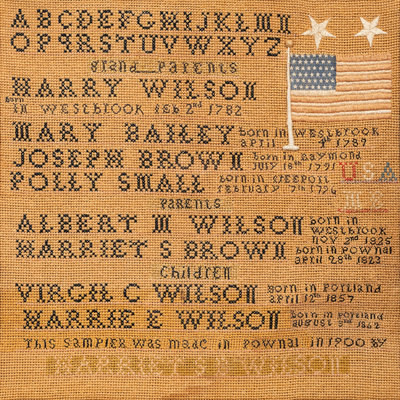 ABCDEFGHIJKLMN
OPQRSTUVWXYZ
Grand Parents
HARRY WILSON
born in WESTBROOK FEB 2nd 1782
MARY BAILEY born in WESTBROOK
APRIL 4th 1789
JOSEPH BROWN born in RAYMOND
JULY 18th 1791
USA
POLLY SMALL born in FREEPORT
FEBRUARY 7th 1796
ME
PARENTS
ALBERT M WILSON born in WESTBROOK
NOV 2nd 1825
HARRIET S BROWN born in POWNAL
APRIL 28th 1823
Children
VIRGIL C WILSON born in PORTLAND
APRIL 12th 1857
HARRIE E WILSON born in PORTLAND
AUGUST 5th 1862
This SAMPLER WAS MADE IN POWNAL IN 1900 BY
HARRIET S B WILSON